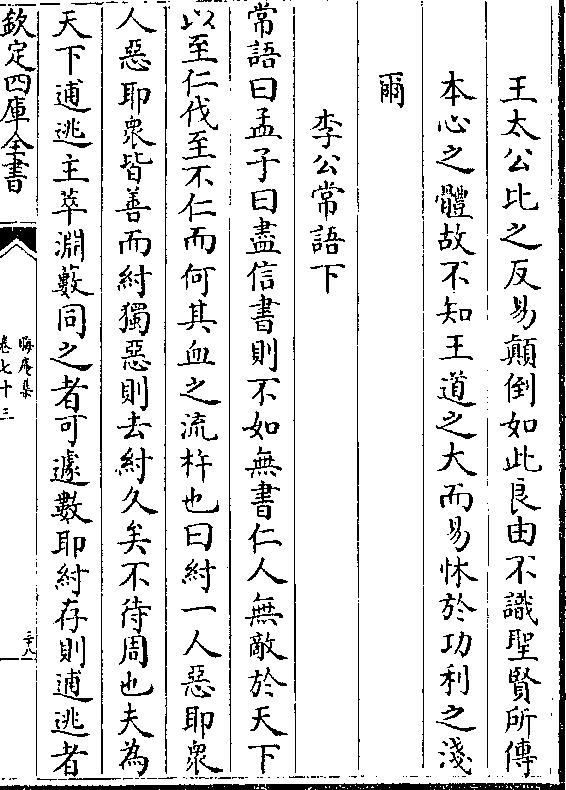 王太公比之反易顛倒如此良由不識聖賢所傳
本心之體故不知王道之大而易怵於功利之淺
爾
李公常語下
常語曰孟子曰盡信書則不如無書仁人無敵於天下
以至仁伐至不仁而何其血之流杵也曰紂一人惡耶衆
人惡耶衆皆善而紂獨惡則去紂久矣不待周也夫為
天下逋逃主萃淵藪同之者可遽數耶紂存則逋逃者
欽定四庫全書
晦庵集
卷七十三
三十八